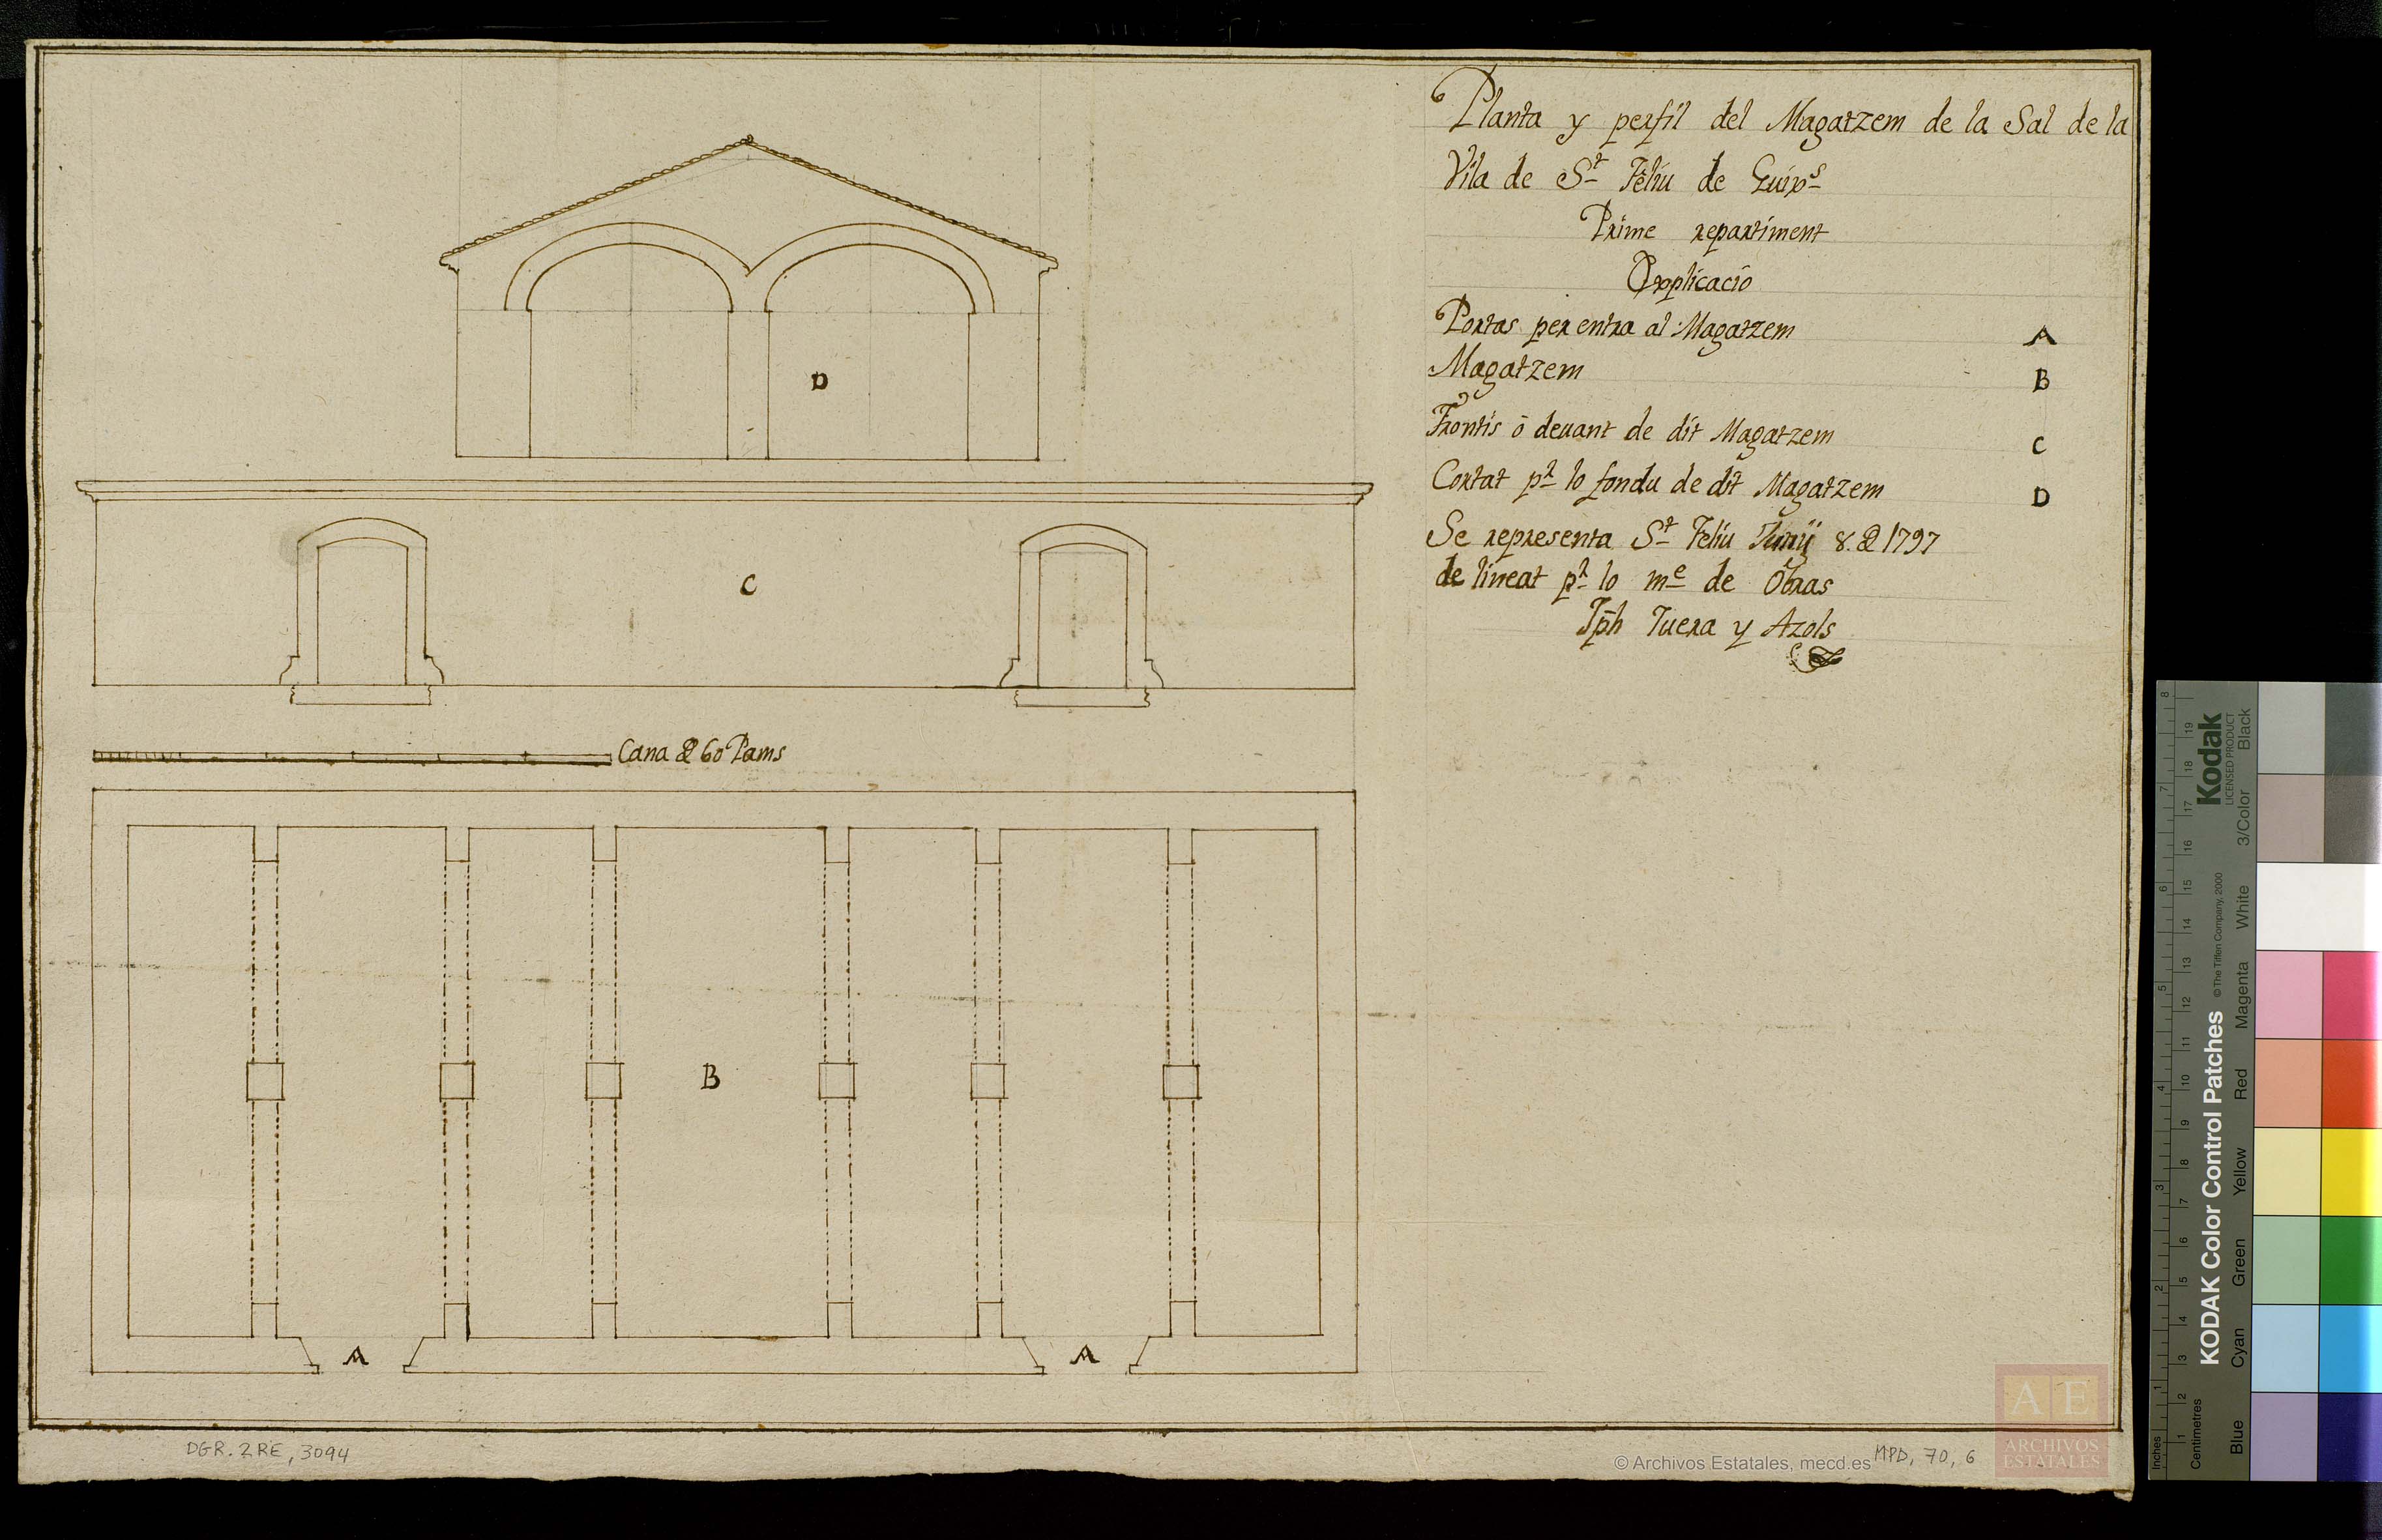 Planta y perfil del Magatzem de la Sal de la
Vila de S.t Feliu de Guix.s
Prime repartiment
Explicacio
Portas per entra al Magatzem A
Magatzem B
Frontis ó devant de dit Magatzem C
Cortat p.r lo fondu de dit Magatzem D
Se representa S.t Feliu Juny 8. de 1797
delineat p.r lo m.e de Obras
Jph Juera y Azols
D
C
Cana de 60 Pams
B
A A
DGR. 2RE, 3094
© Archivos Estatales, mecd.es MPD, 70, 6
AE
ARCHIVOS
ESTATALES
Kodak
LICENSED PRODUCT
KODAK Color Control Patches © The Tiffen Company, 2000
Blue Cyan Green Yellow Red Magenta White 3/Color Black
Inches 1 2 3 4 5 6 7 8
Centimetres 1 2 3 4 5 6 7 8 9 10 11 12 13 14 15 16 17 18 19